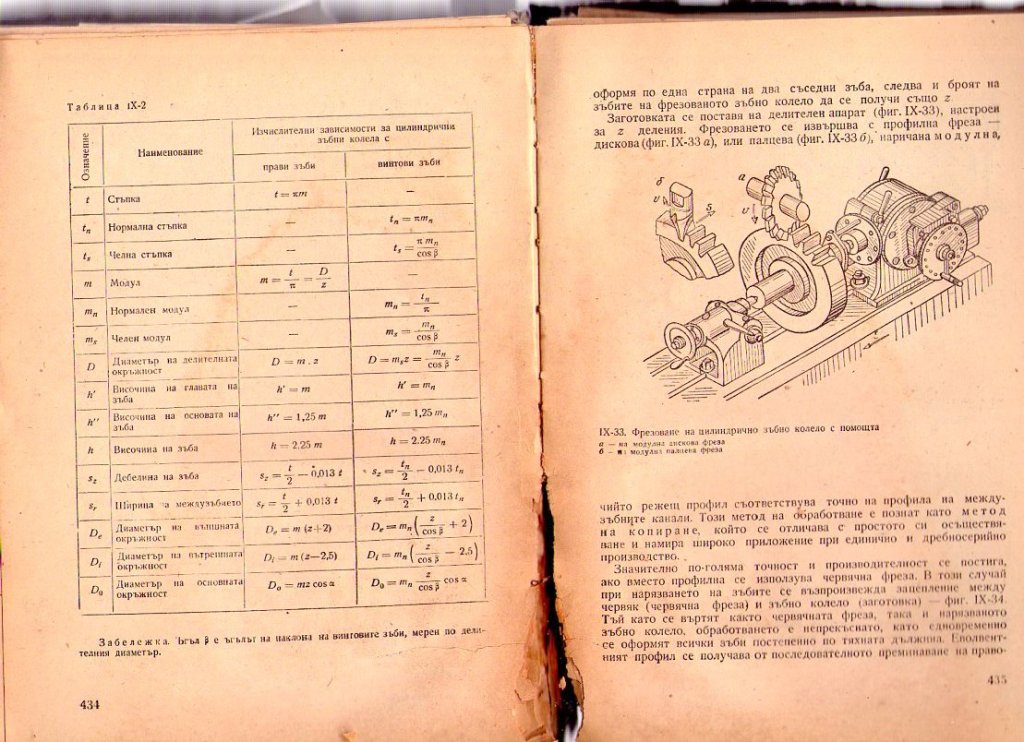 Таблица IX-2
Означение
Наименование
Изчислителни зависимости за цилиндрични
зъбни колела с
прави зъби
винтови зъби
t Стъпка t = πm —
tₙ Нормална стъпка — tₙ = πmₙ
tₛ Челна стъпка — tₛ = π mₙ / cos β
m Модул m = t / π = D / z —
mₙ Нормален модул — mₙ = tₙ / π
mₛ Челен модул — mₛ = mₙ / cos β
D Диаметър на делителната окръжност D = m . z D = mₛz = mₙ / cos β z
h′ Височина на главата на зъба h′ = m h′ = mₙ
h″ Височина на основата на зъба h″ = 1,25 m h″ = 1,25 mₙ
h Височина на зъба h = 2,25 m h = 2,25 mₙ
s_z Дебелина на зъба s_z = t / 2 — 0,013 t s_z = tₙ / 2 — 0,013 tₙ
s_r Ширина на междузъбието s_r = t / 2 + 0,013 t s_r = tₙ / 2 + 0,013 tₙ
Dₑ Диаметър на външната окръжност Dₑ = m (z+2) Dₑ = mₙ (z / cos β + 2)
Dᵢ Диаметър на вътрешната окръжност Dᵢ = m (z—2,5) Dᵢ = mₙ (z / cos β — 2,5)
D₀ Диаметър на основната окръжност D₀ = mz cos α D₀ = mₙ z / cos β cos α
Забележка. Ъгъл β е ъгълът на наклона на винтовите зъби, мерен по дели-
телния диаметър.
434
оформя по една страна на два съседни зъба, следва и броят на
зъбите на фрезованото зъбно колело да се получи също z
Заготовката се поставя на делителен апарат (фиг. IX-33), настроен
за z деления. Фрезоването се извършва с профилна фреза —
дискова (фиг. IX-33 а), или палцева (фиг. IX-33 б), наричана модулна,
б
υ
s
а
υ
s
IX-33. Фрезоване на цилиндрично зъбно колело с помощта
а — на модулна дискова фреза
б — на модулна палцева фреза
чийто режещ профил съответствува точно на профила на между-
зъбните канали. Този метод на обработване е познат като метод
на копиране, който се отличава с простото си осъществя-
ване и намира широко приложение при единично и дребносерийно
производство.
Значително по-голяма точност и производителност се постига,
ако вместо профилна се използува червячна фреза. В този случай
при нарязването на зъбите се възпроизвежда зацепление между
червяк (червячна фреза) и зъбно колело (заготовка) — фиг. IX-34.
Тъй като се въртят както червячната фреза, така и нарязваното
зъбно колело, обработването е непрекъснато, като едновременно
се оформят всички зъби постепенно по тяхната дължина. Еволвент-
ният профил се получава от последователното преминаване на право-
435